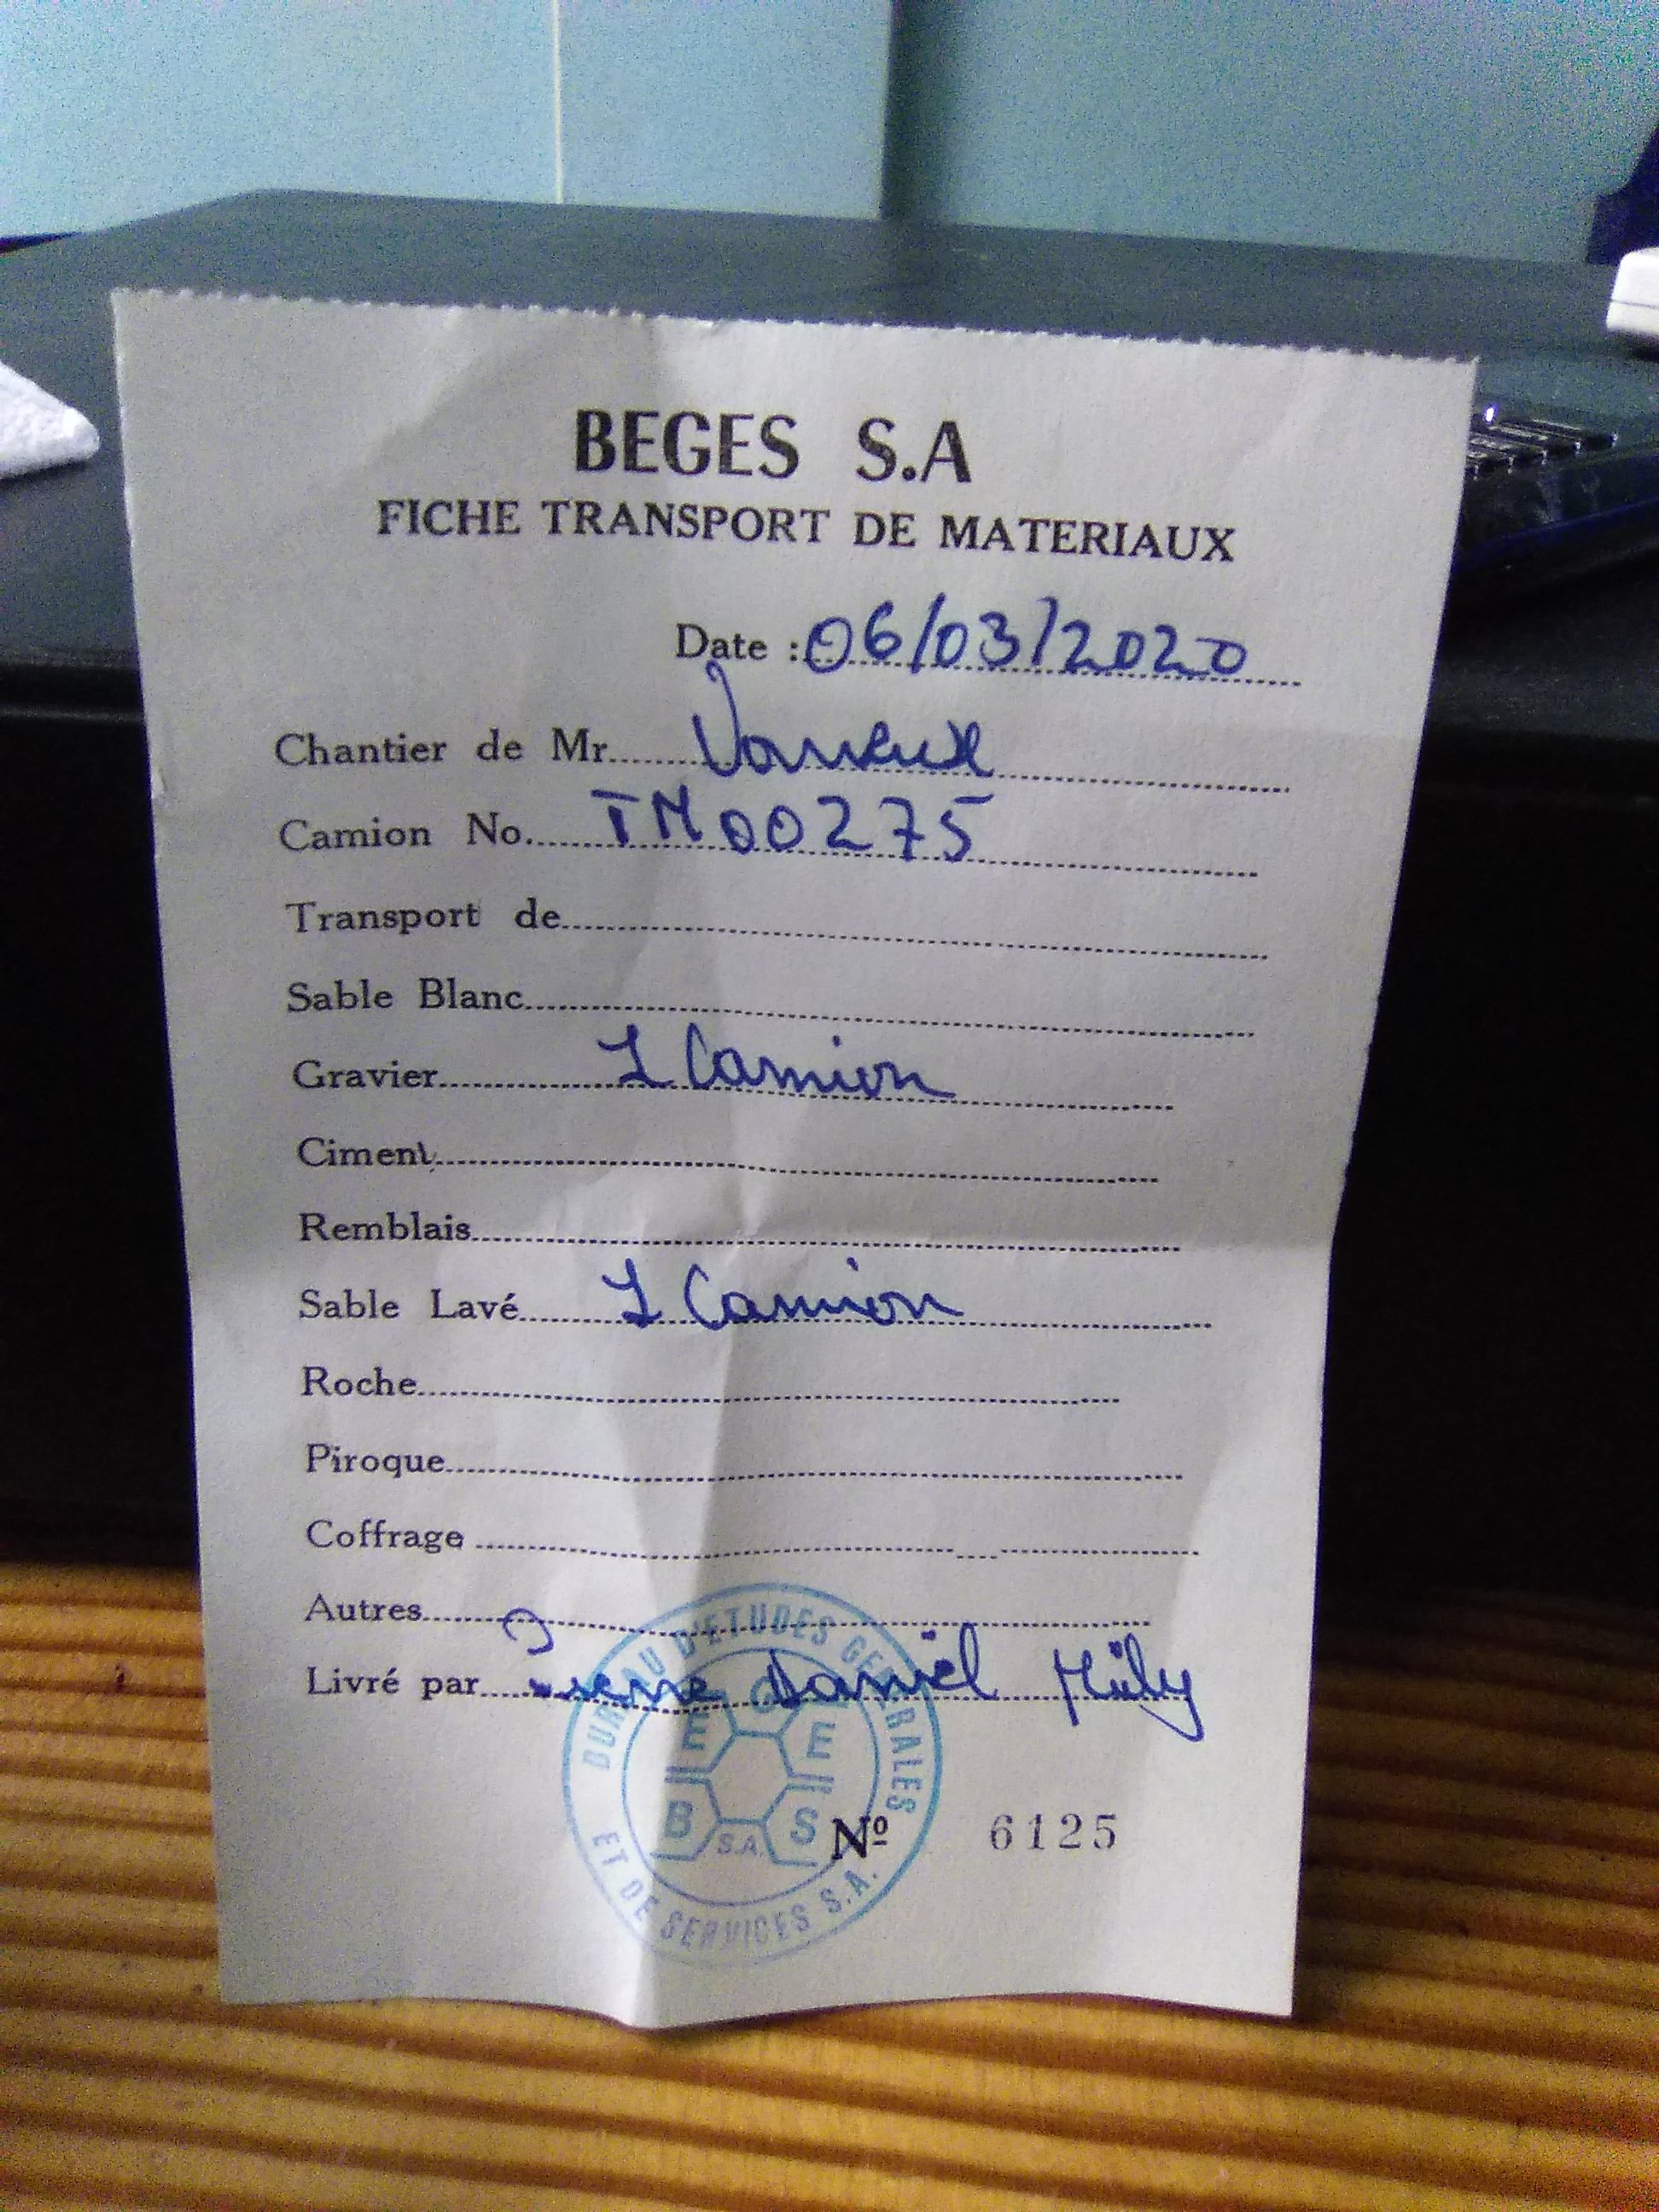 BEGES S.A
FICHE TRANSPORT DE MATERIAUX
Date : 06/03/2020
Chantier de Mr
Camion No. TM00275
Transport de
Sable Blanc
Gravier 1 Camion
Ciment
Remblais
Sable Lavé 1 Camion
Roche
Piroque
Coffrage
Autres
Livré par Pierre Daniel
BUREAU D'ETUDES GENERALES
ET DE SERVICES S.A.
B E G E S
S.A.
Nº 6125